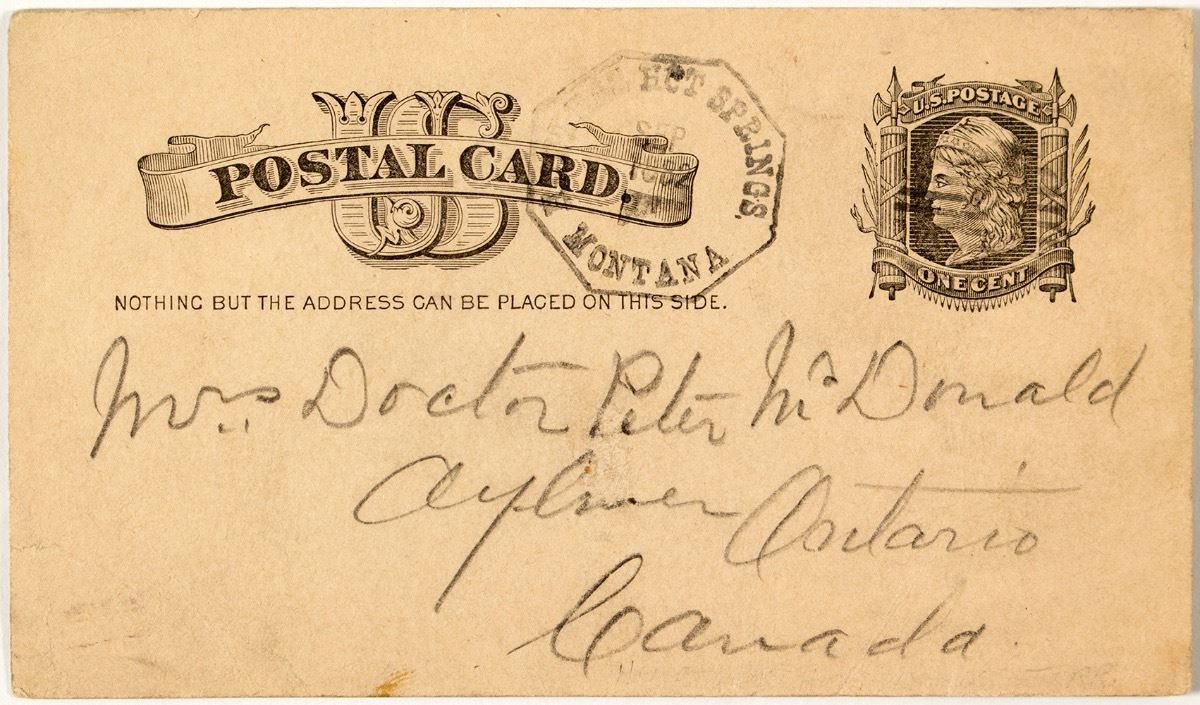 US
POSTAL CARD.
HOT SPRINGS,
SEP
MONTANA
U.S. POSTAGE
ONE CENT
NOTHING BUT THE ADDRESS CAN BE PLACED ON THIS SIDE.
Mrs. Doctor Peter McDonald
Aylmer Ontario
Canada.